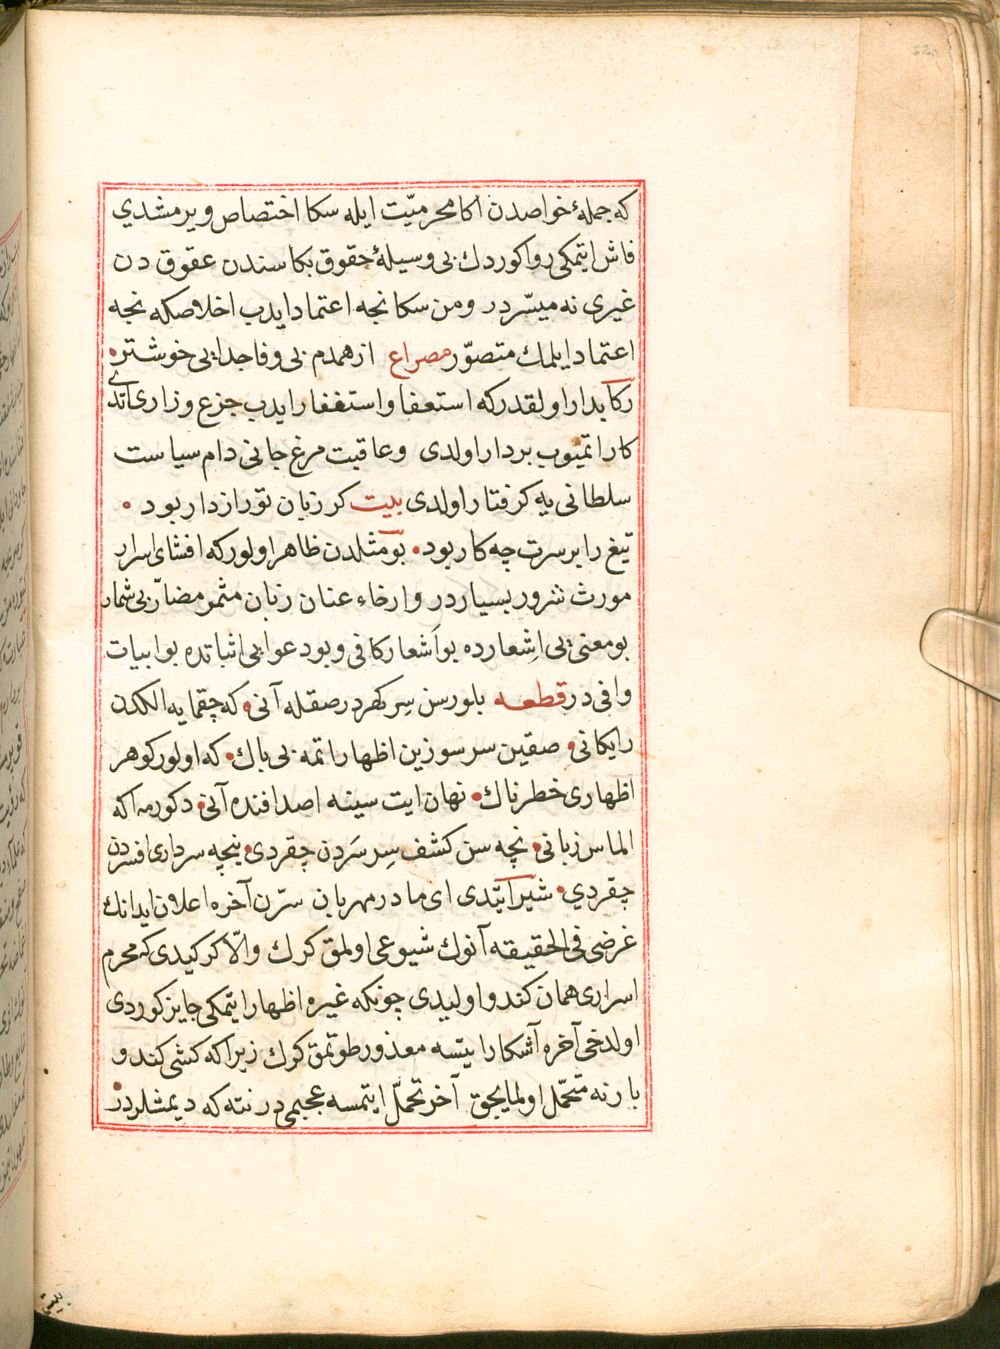 كه جملهٔ خواصدن اكا محرميّت ايله سكا اختصاص ويرمشدي
فاش ايتمكى روا كوردك بى وسيلهٔ حقوق بكا سندن عقوق دن
غيرى نه ميسّردر ومن سكا نجه اعتماد ايدب اخلاصكه نجه
اعتماد ايلمك متصوّر مصراع از همدم بى وفا جدايى خوشتر
ركابدار اولقدركه استعفا واستغفار ايدب جزع وزارى اتدى
كار اتميوب بردار اولدى وعاقبت مرغ جانى دام سياست
سلطانى يه كرفتار اولدى بيت كر زبان تو رازدار بود
تيغ را بر سرت چه كار بود بو مثلدن ظاهر اولوركه افشاى اسرار
مورث شرور بسياردر وارخاء عنان زبان مثمر مضارّ بى شمار
بو معنى يى اِشعارده بو اَشعار كافى وبو دعوايى اثباتده بو ابيات
وافى در قطعه بلورسن سِر كهردر صقله آنى كه چقمايه الكدن
رايكانى صقين سر سوزين اظهار اتمه بى باك كه اولور كوهر
اظهارى خطرناك نهان ايت سينه اصدافنده آنى دكورمه اكه
الماس زبانى نچه سن كشف سِر سَردن چقردى نيجه سردارى افسردن
چقردي شير ايتدى اى مادر مهربان سرّن آخره اعلان ايدانك
غرضى فى الحقيقه آنوك شيوعى اولمق كرك والّا كركيدى كه محرم
اسرارى همان كندو اوليدى چونكه غيره اظهار ايتمكى جايز كوردى
اول دخى آخره آشكارا ايتسه معذور طوتمق كرك زيرا كه كشى كندو
بارنه متحمّل اولمايجق آخر تحمّل ايتمسه عجبمى در نته كه ديمشلردر